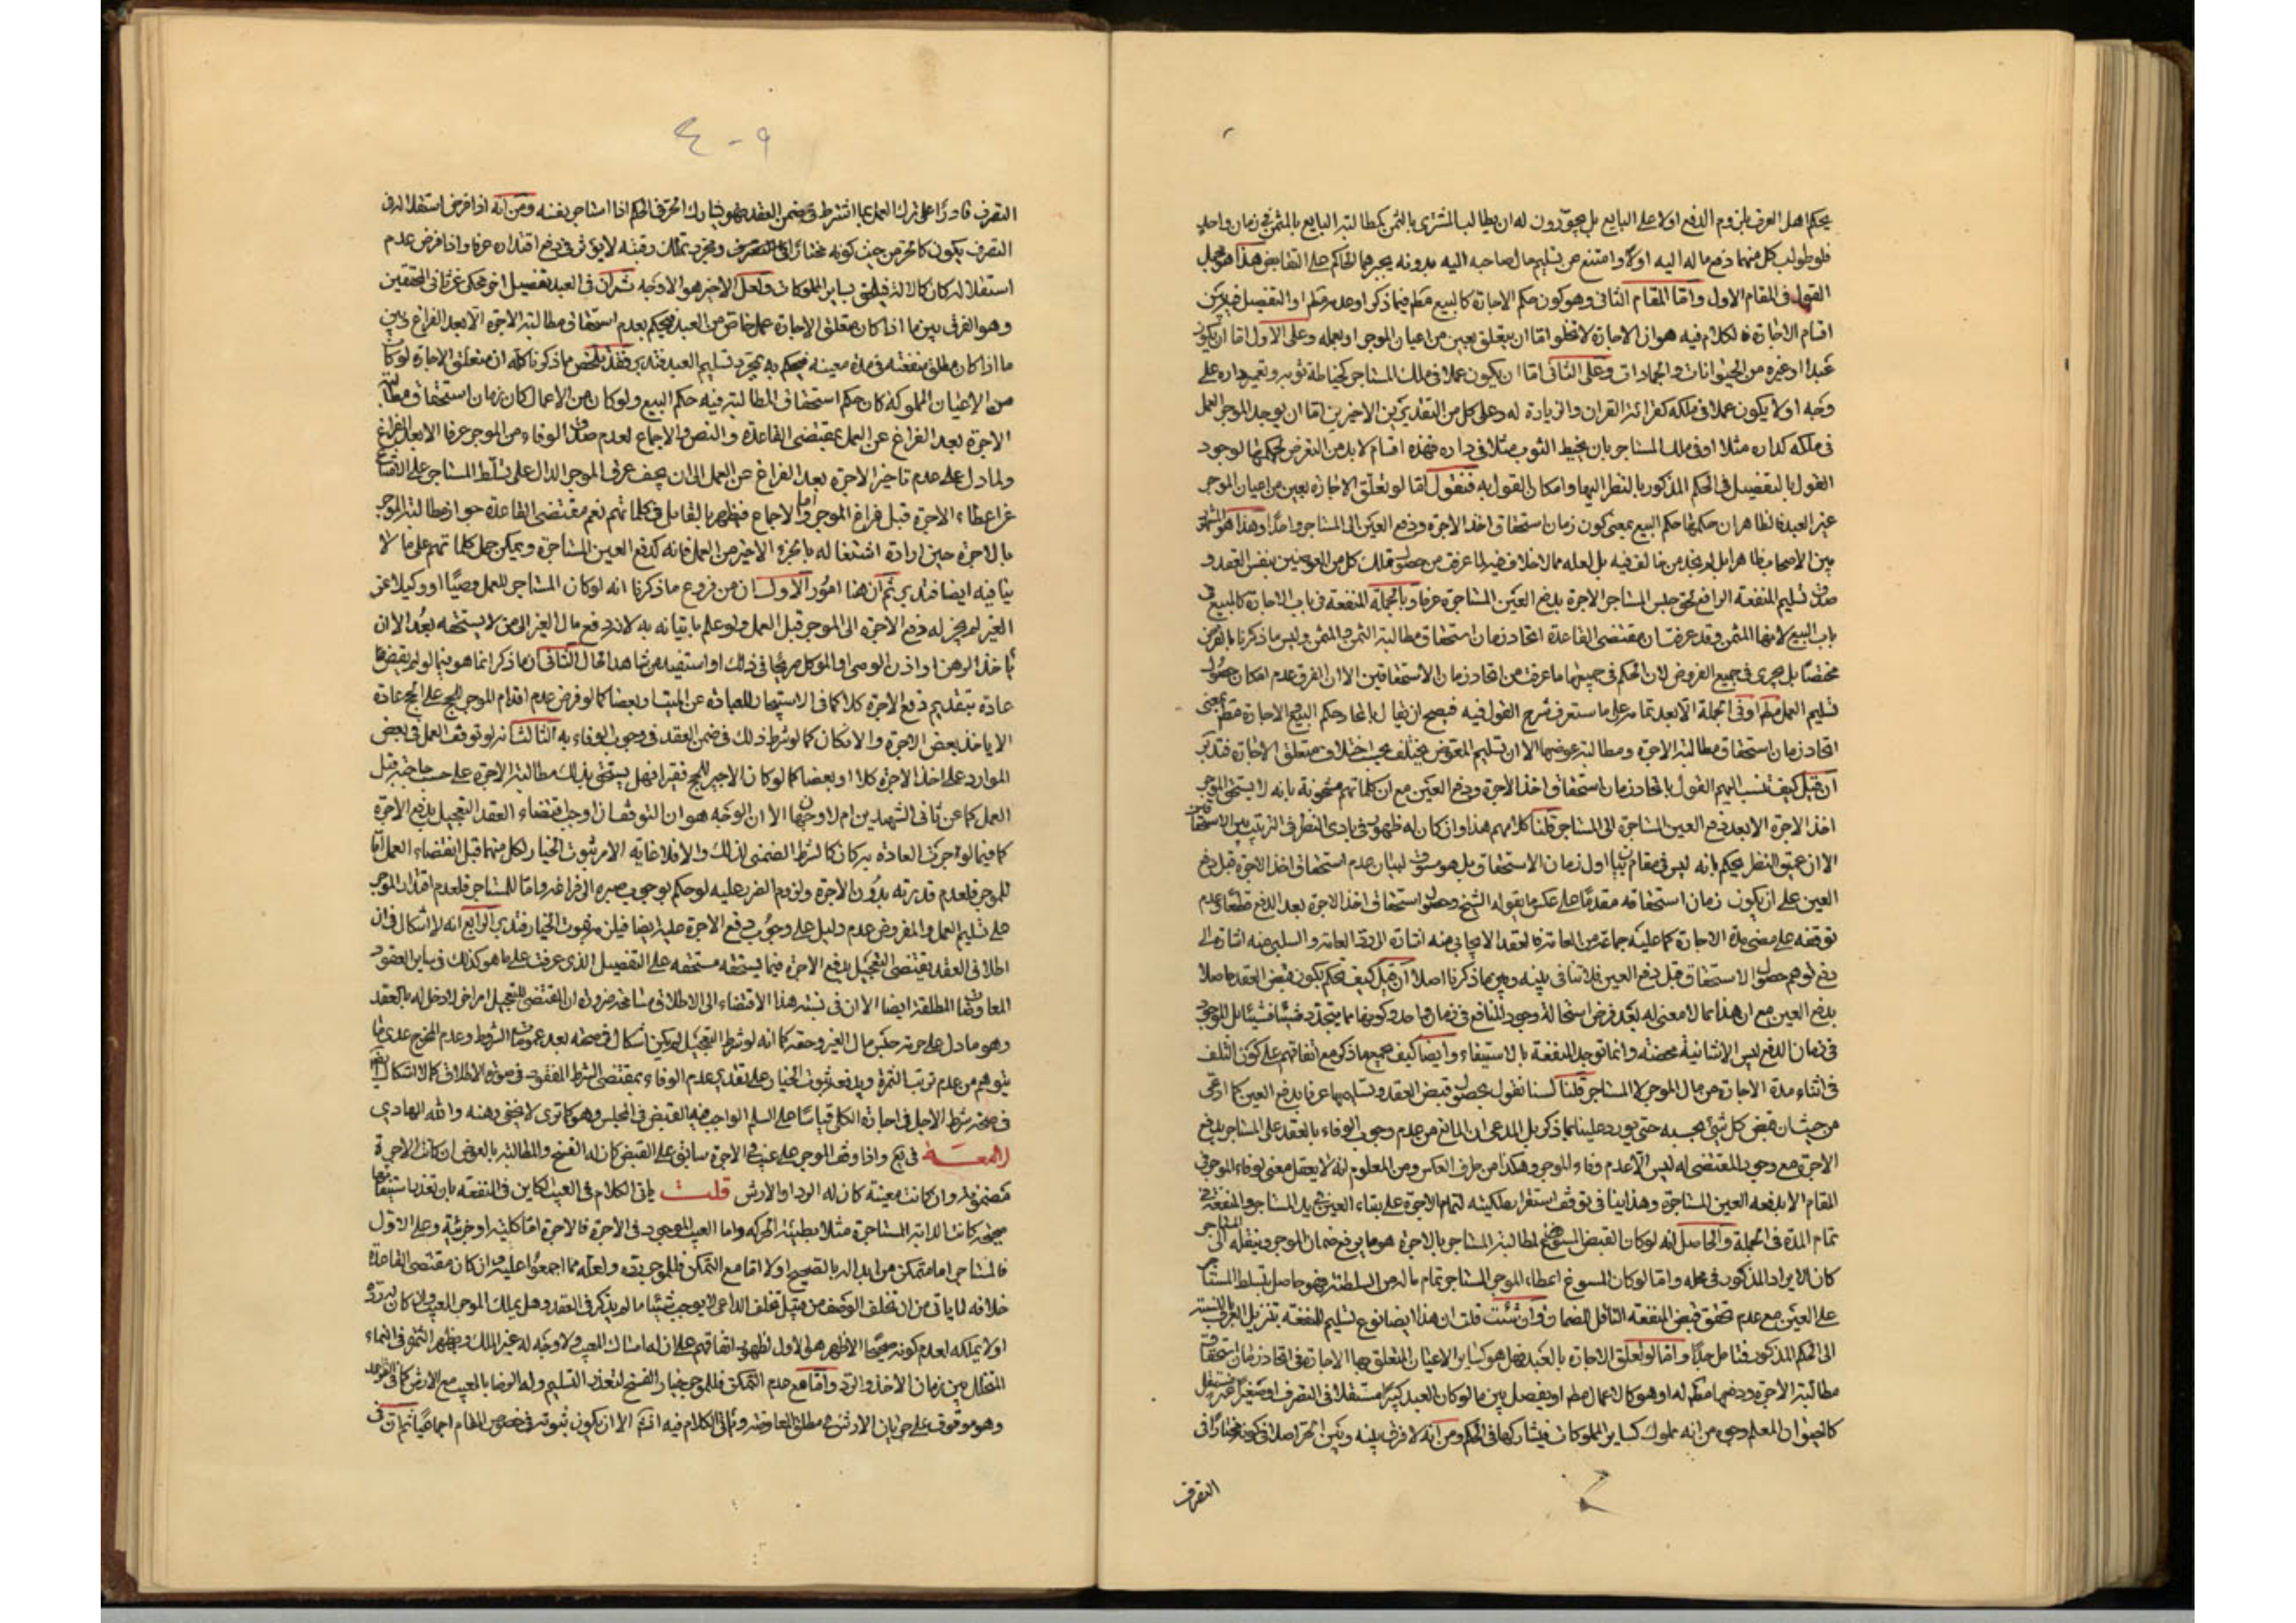 يحكم اهل العرف بلزوم الدفع اولا على البايع بل يجوّزون له ان يطالب المشتري بالثمن كمطالبته البايع بالمثمن في زمان واحد
فلو طولب كل منهما دفع ما له اليه اولا وامتنع من تسليم مال صاحبه اليه بدونه يجبرهما الحاكم على التقابض هذا هو
القول في المقام الاول واما المقام الثاني وهو كون حكم الاجارة كالبيع فيما ذكر او عدمه او التفصيل بين
اقسام الاجارة فالكلام فيه هو ان الاجارة لا تخلو اما ان يتعلق بعين من اعيان الموجر او بعمله وعلى الاول اما ان يكون
عبدا او غيره من الحيوانات والجمادات وعلى الثاني اما ان يكون عملا في ملك المستاجر كخياطة ثوبه وتعمير داره على
وجه او لا يكون عملا في ملكه كقرائة القران والزيادة له وعلى كل من التقديرين الاخيرين اما ان يوجد الموجر العمل
في ملكه كداره مثلا او في ملك المستاجر بان يخيط الثوب مثلا في داره فهذه اقسام لا بد من التعرض لحكمها لوجود
القول بالتفصيل في الحكم المذكور بالنظر اليها وامكان القول به فنقول اما لو تعلق الاجارة بعين من اعيان الموجر
غير العبد فالظاهر ان حكمها حكم البيع بمعنى كون زمان استحقاق اخذ الاجرة ودفع العين الى المستاجر واحدا وهذا هو
بين الاصحاب ظاهرا بل لم نجد من خالف فيه بل لعله مما لا خلاف فيه لما عرفت من تملك كل من العوضين بنفس العقد و
تسليم المنفعة الرافع لحق حبس المستاجر الاجرة بدفع العين المستاجرة عرفا وبالجملة المنفعة في باب الاجارة كالمبيع في
باب البيع لانها المثمن وقد عرفت ان مقتضى القاعدة اتحاد زمان استحقاق مطالبة الثمن والمثمن وليس ما ذكرنا بالفرض
مختصا بل يجري في جميع الفروض لان الحكم في جميعها ما عرفت من اتحاد زمان الاستحقاقين الا ان الفرق عدم امكان حصول
تسليم العمل او في الجملة الا بعد تمامه على ما ستعرف شرح القول فيه فيصح ان يقال باتحاد حكم البيع والاجارة بمعنى
اتحاد زمان استحقاق مطالبة الاجرة ومطالبة عوضها الا ان تسليم المعوض يختلف بحسب اختلاف متعلق الاجارة فتدبر
ان قيل كيف تنسب اليهم القول باتحاد زمان استحقاق اخذ الاجرة ودفع العين مع ان كلماتهم مشحونة بانه لا يستحق الموجر
اخذ الاجرة الا بعد دفع العين المستاجرة الى المستاجر قلنا كلامهم هذا وان كان له ظهور في بادي النظر في الترتيب بين
الا ان عميق النظر يحكم بانه ليس في مقام بيان اول زمان الاستحقاق بل هو مسوق لبيان عدم استحقاق اخذ الاجرة قبل دفع
العين على ان يكون زمان استحقاقه مقدما على عكس ما يقوله الشيخ وحصول استحقاق اخذ الاجرة بعد الدفع قطعا وعدم
توقفه على مضي مدة الاجارة كما عليه جماعة من العامة فالعقد الايجابي منه اشارة الى رد العامة والسلبي منه اشارة الى
دفع توهم حصول الاستحقاق قبل دفع العين فلا تنافي بينه وبين ما ذكرنا اصلا ان قيل كيف تحكم بكون قبض العقد حاصلا
بدفع العين مع ان هذا مما لا معنى له بعد فرض استحالة وجود المنافع في زمان واحد وكونها مما يتجدد شيئا فشيئا بل الموجود
في زمان الدفع ليس الا شانية محضة وانما توجد المنفعة بالاستيفاء وايضا كيف يجمع ما ذكر مع اتفاقهم على كون التلف
في اثناء مدة الاجارة من مال الموجر لا المستاجر قلنا لسنا نقول بحصول قبض العقد وتسليمها عرفا بدفع العين كما ادعى
من حيث ان قبض كل شيء بحسبه حتى يورد علينا بما ذكر بل المدعى ان المانع من عدم وجوب الوفاء بالعقد على المستاجر بدفع
الاجرة مع وجود المقتضي له ليس الا عدم وفاء الموجر وهكذا من طرف العكس ومن المعلوم انه لا يعقل معنى لوفاء الموجر في
المقام الا بدفعه العين المستاجرة وهذا لا ينافي توقف استقرار ملكيته لتمام الاجرة على بقاء العين في يد المستاجر والمنفعة في
تمام المدة في الجملة والحاصل انه لو كان القبض المسوغ لمطالبة المستاجر بالاجرة هو ما يرفع ضمان الموجر وينقله الى المستاجر
كان الايراد المذكور في محله واما لو كان المسوغ اعطاء الموجر المستاجر تمام ماله من السلطنة فهو حاصل بتسلط المستاجر
على العين مع عدم تحقق قبض المنفعة الناقل للضمان وان شئت قلت ان هذا ايضا نوع تسليم للمنفعة بتنزيل العرف بالنسبة
الى الحكم المذكور فتامل جدا واما لو تعلق الاجارة بالعبد فهل هو كساير الاعيان المتعلق بها الاجارة في اتحاد زمان استحقاق
مطالبة الاجرة ودفعها له او هو كالاعمال او يفصل بين ما لو كان العبد كبيرا مستقلا في التصرف او صغيرا غير مستقل
كالحيوان المعلم وجوه من انه مملوك كساير المملوكات فيشاركها في الحكم ومن انه لا فرق بينه وبين الحر اصلا في كونه مختارا في
التصرف
٤٠٩
التصرف قادرا على ترك العمل بما اشترط في ضمن العقد فهو يشارك الحر في الحكم اذا استاجر بنفسه ومن انه اذا فرض استقلاله في
التصرف يكون كالحر من حيث كونه مختارا في التصرف ومجرد تملك رقبته لا يؤثر في رفع اقتداره عرفا واذا فرض عدم
استقلاله كان كالالة فيلحق بساير المملوكات ولعل الاخير هو الاوجه ثم ان في العبد تفصيل اخر محكي عن ثاني المحققين
وهو الفرق بين ما اذا كان متعلق الاجارة عمل خاص من العبد فيحكم بعدم استحقاق مطالبة الاجرة الا بعد الفراغ وبين
ما اذا كان مطلق منفعته في مدة معينة فيحكم به بمجرد تسليم العبد فتدبر فقد تلخص مما ذكرنا كله ان متعلق الاجارة لو كان
من الاعيان المملوكة كان حكم استحقاق المطالبة فيه حكم البيع ولو كان من الاعمال كان زمان استحقاق مطالبة
الاجرة بعد الفراغ عن العمل بمقتضى القاعدة والنص والاجماع لعدم صدق الوفاء من الموجر عرفا الا بعد الفراغ
ولما دل على عدم تاخير الاجرة بعد الفراغ عن العمل الى ان يجف عرق الموجر الدال على تسلط المستاجر على الامتناع
عن اعطاء الاجرة قبل فراغ الموجر واما الاجماع فيظهر بالتامل في كلماتهم نعم مقتضى القاعدة جواز مطالبة الموجر
بالاجرة حين ارادة اشتغاله بالجزء الاخير من العمل فانه كدفع العين المستاجرة ويمكن حمل كلماتهم على ما لا
ينافيه ايضا فتدبر ثم ان هنا امور الاول ان من فروع ما ذكرنا انه لو كان المستاجر للعمل وصيا او وكيلا عن
الغير لم يجز له دفع الاجرة الى الموجر قبل العمل ولو علم باتيانه به لانه دفع مال الغير الى من لا يستحقه بعد الا ان
ياخذ الرهن او اذن الموصي او الموكل صريحا في ذلك او استفيد من شاهد الحال الثاني ان ما ذكر انما هو فيما لو لم يقض
عادة بتقديم دفع الاجرة كلا كما في الاستيجار للعبادة عن الميت او بعضا كما لو فرض عدم اقدام الموجر للحج على الحج عادة
الا ياخذ بعض الاجرة والا فكان كما لو شرط ذلك في ضمن العقد في وجوب الوفاء به الثالث انه لو توقف العمل في بعض
الموارد على اخذ الاجرة كلا او بعضا كما لو كان الاجير للحج فقيرا فهل يستحق بذلك مطالبة الاجرة على حسب حاجته قبل
العمل كما عن ثاني الشهيدين ام لا وجهان الا ان الوجه هو ان التوقف ان اوجب اقتضاء العقد التعجيل بدفع الاجرة
كما فيما لو جرت العادة به كان كالشرط الضمني لذلك والا فلا غاية الامر ثبوت الخيار لكل منهما قبل انقضاء العمل اما
للموجر فلعدم قدرته بدون الاجرة ولزوم الضرر عليه لو حكم بوجوب صبره الى فراغه واما للمستاجر فلعدم اقتدار الموجر
على تسليم العمل والمفروض عدم دليل على وجوب دفع الاجرة عليه ايضا فيلزم ثبوت الخيار فتدبر الرابع انه لا اشكال في ان
اطلاق العقد يقتضي التعجيل بدفع الاجرة فيما يستحقه مستحقه على التفصيل الذي عرفت على ما هو كذلك في ساير العقود
المعاوضة المطلقة ايضا الا ان في نسبة هذا الاقتضاء الى الاطلاق مسامحة ضرورة ان المقتضي للتعجيل امر اخر لا دخل له بالعقد
وهو ما دل على حرمة حبس مال الغير وحقه كما انه لو شرط التعجيل لم يكن اشكال في صحته بعد عموم الشروط وعدم المخرج عدا ما
يتوهم من عدم ترتب الثمرة ويدفعه ثبوت الخيار على تقدير عدم الوفاء بمقتضى الشرط المفقود في صورة الاطلاق كما لا اشكال
في صحة شرط الاجل في اجارة الكلي قياسا على السلم الواجب فيه القبض في المجلس وهو كما ترى لا يخفى وهنه والله الهادي
في يع واذا وقف الموجر على عيب في الاجرة سابق على القبض كان له الفسخ والمطالبة بالعوض ان كانت الاجرة
مضمونة وان كانت معينة كان له الرد او الارش قلت ياتي الكلام في العيب الكاين في المنفعة بان تعذر استيفائها
صحيحة كانت الدابة المستاجرة مثلا بطيئة الحركة واما العيب الموجود في الاجرة فالاجرة اما كلية او جزئية وعلى الاول
فالمستاجر اما متمكن من ابداله بالصحيح او لا اما مع التمكن فللموجر رده ولعله مما اجمعوا عليه وان كان مقتضى القاعدة
خلافه لما ياتي من ان تخلف الوصف من قبيل تخلف الداعي لا يوجب شيئا ما لم يذكر في العقد وهل يملك الموجر المعيب وان كان له رده
او لا يملكه لعدم كونه صحيحا الاظهر هو الاول لظهور اتفاقهم على ان له امساك المعيب ولا وجه له غير الملك ويظهر الثمر في النماء
المتخلل بين زمان الاخذ والرد واما مع عدم التمكن فللموجر خيار الفسخ لتعذر التسليم وله الرضا بالمعيب مع الارش كما في القواعد
وهو موقوف على جريان الارش في مطلق المعاوضة وياتي الكلام فيه انشا الا ان يكون ثبوته في خصوص المقام اجماعيا ثم ان في